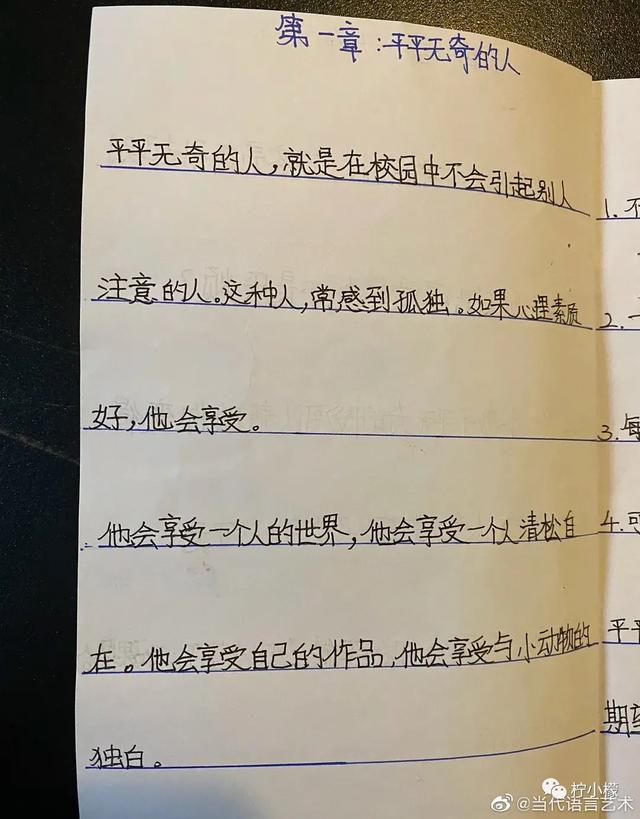 第一章：平平无奇的人
平平无奇的人，就是在校园中不会引起别人
注意的人。这种人，常感到孤独。如果心理素质
好，他会享受。
他会享受一个人的世界，他会享受一个人清松自
在。他会享受自己的作品，他会享受与小动物的
独白。
1. 不
2. 一
3. 每
4. 可
平平
期望
柠小檬
@当代语言艺术